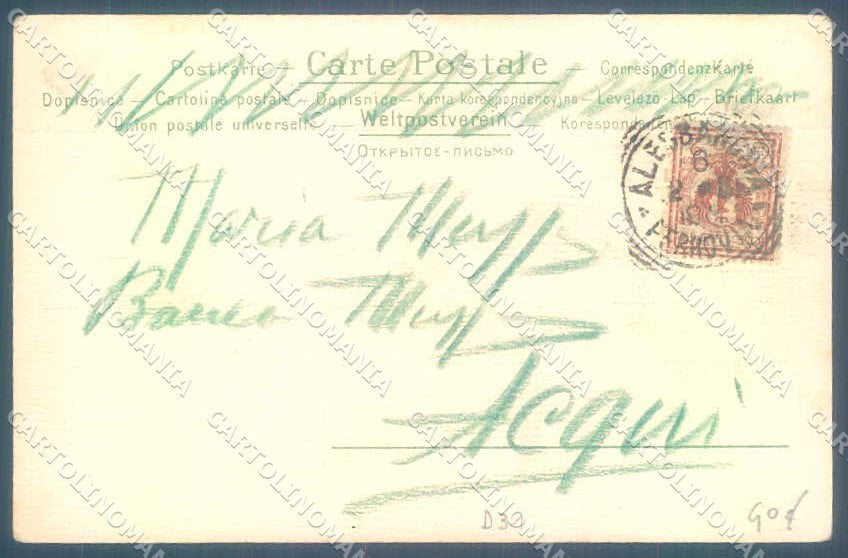 Postkarte – Carte Postale – Correspondenzkarte
Dopisnica – Cartolina postale – Dopisnice – Karta korespondencyjna – Levelező-Lap – Briefkaart
Union postale universelle Weltpostverein
ОТКРЫТОЕ-ПИСЬМО
ALESSANDRIA
6
FERROV
Maria
Acqui
D32
CARTOLINOMANIA